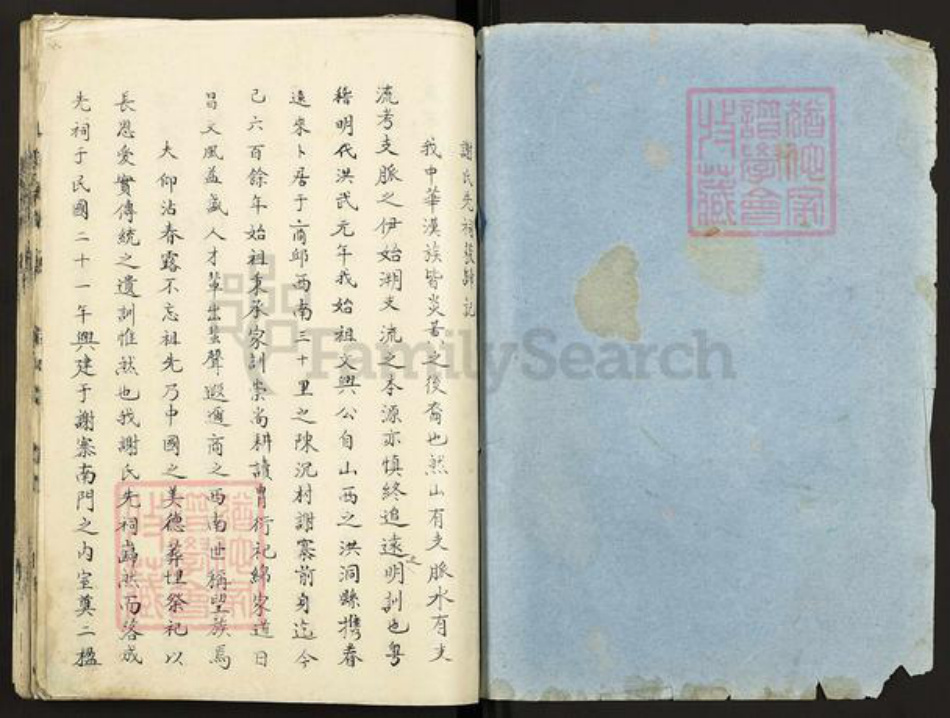 謝氏先祠後記
我中華漢族皆炎黃之後裔也然山有支脈水有支
流考支脈之伊始溯支流之本源亦慎終追遠之明訓也粵
稽明代洪武元年我始祖文興公自山西之洪洞縣携眷
遠來卜居于商邱西南三十里之陳況村謝寨前身迄今
己六百餘年始祖秉承家訓崇尚耕讀胄衍祀綿家道日
昌文風益盛人才輩出蜚聲遐邇商之西南世稱望族焉
大仰沾春露不忘祖先乃中國之美德葬埋祭祀以
長恩愛實傳統之遺訓惟然也我謝氏先祠巋然而落成
先祠于民國二十一年興建于謝寨南門之内室奠二楹
譜學會
收藏
FamilySearch